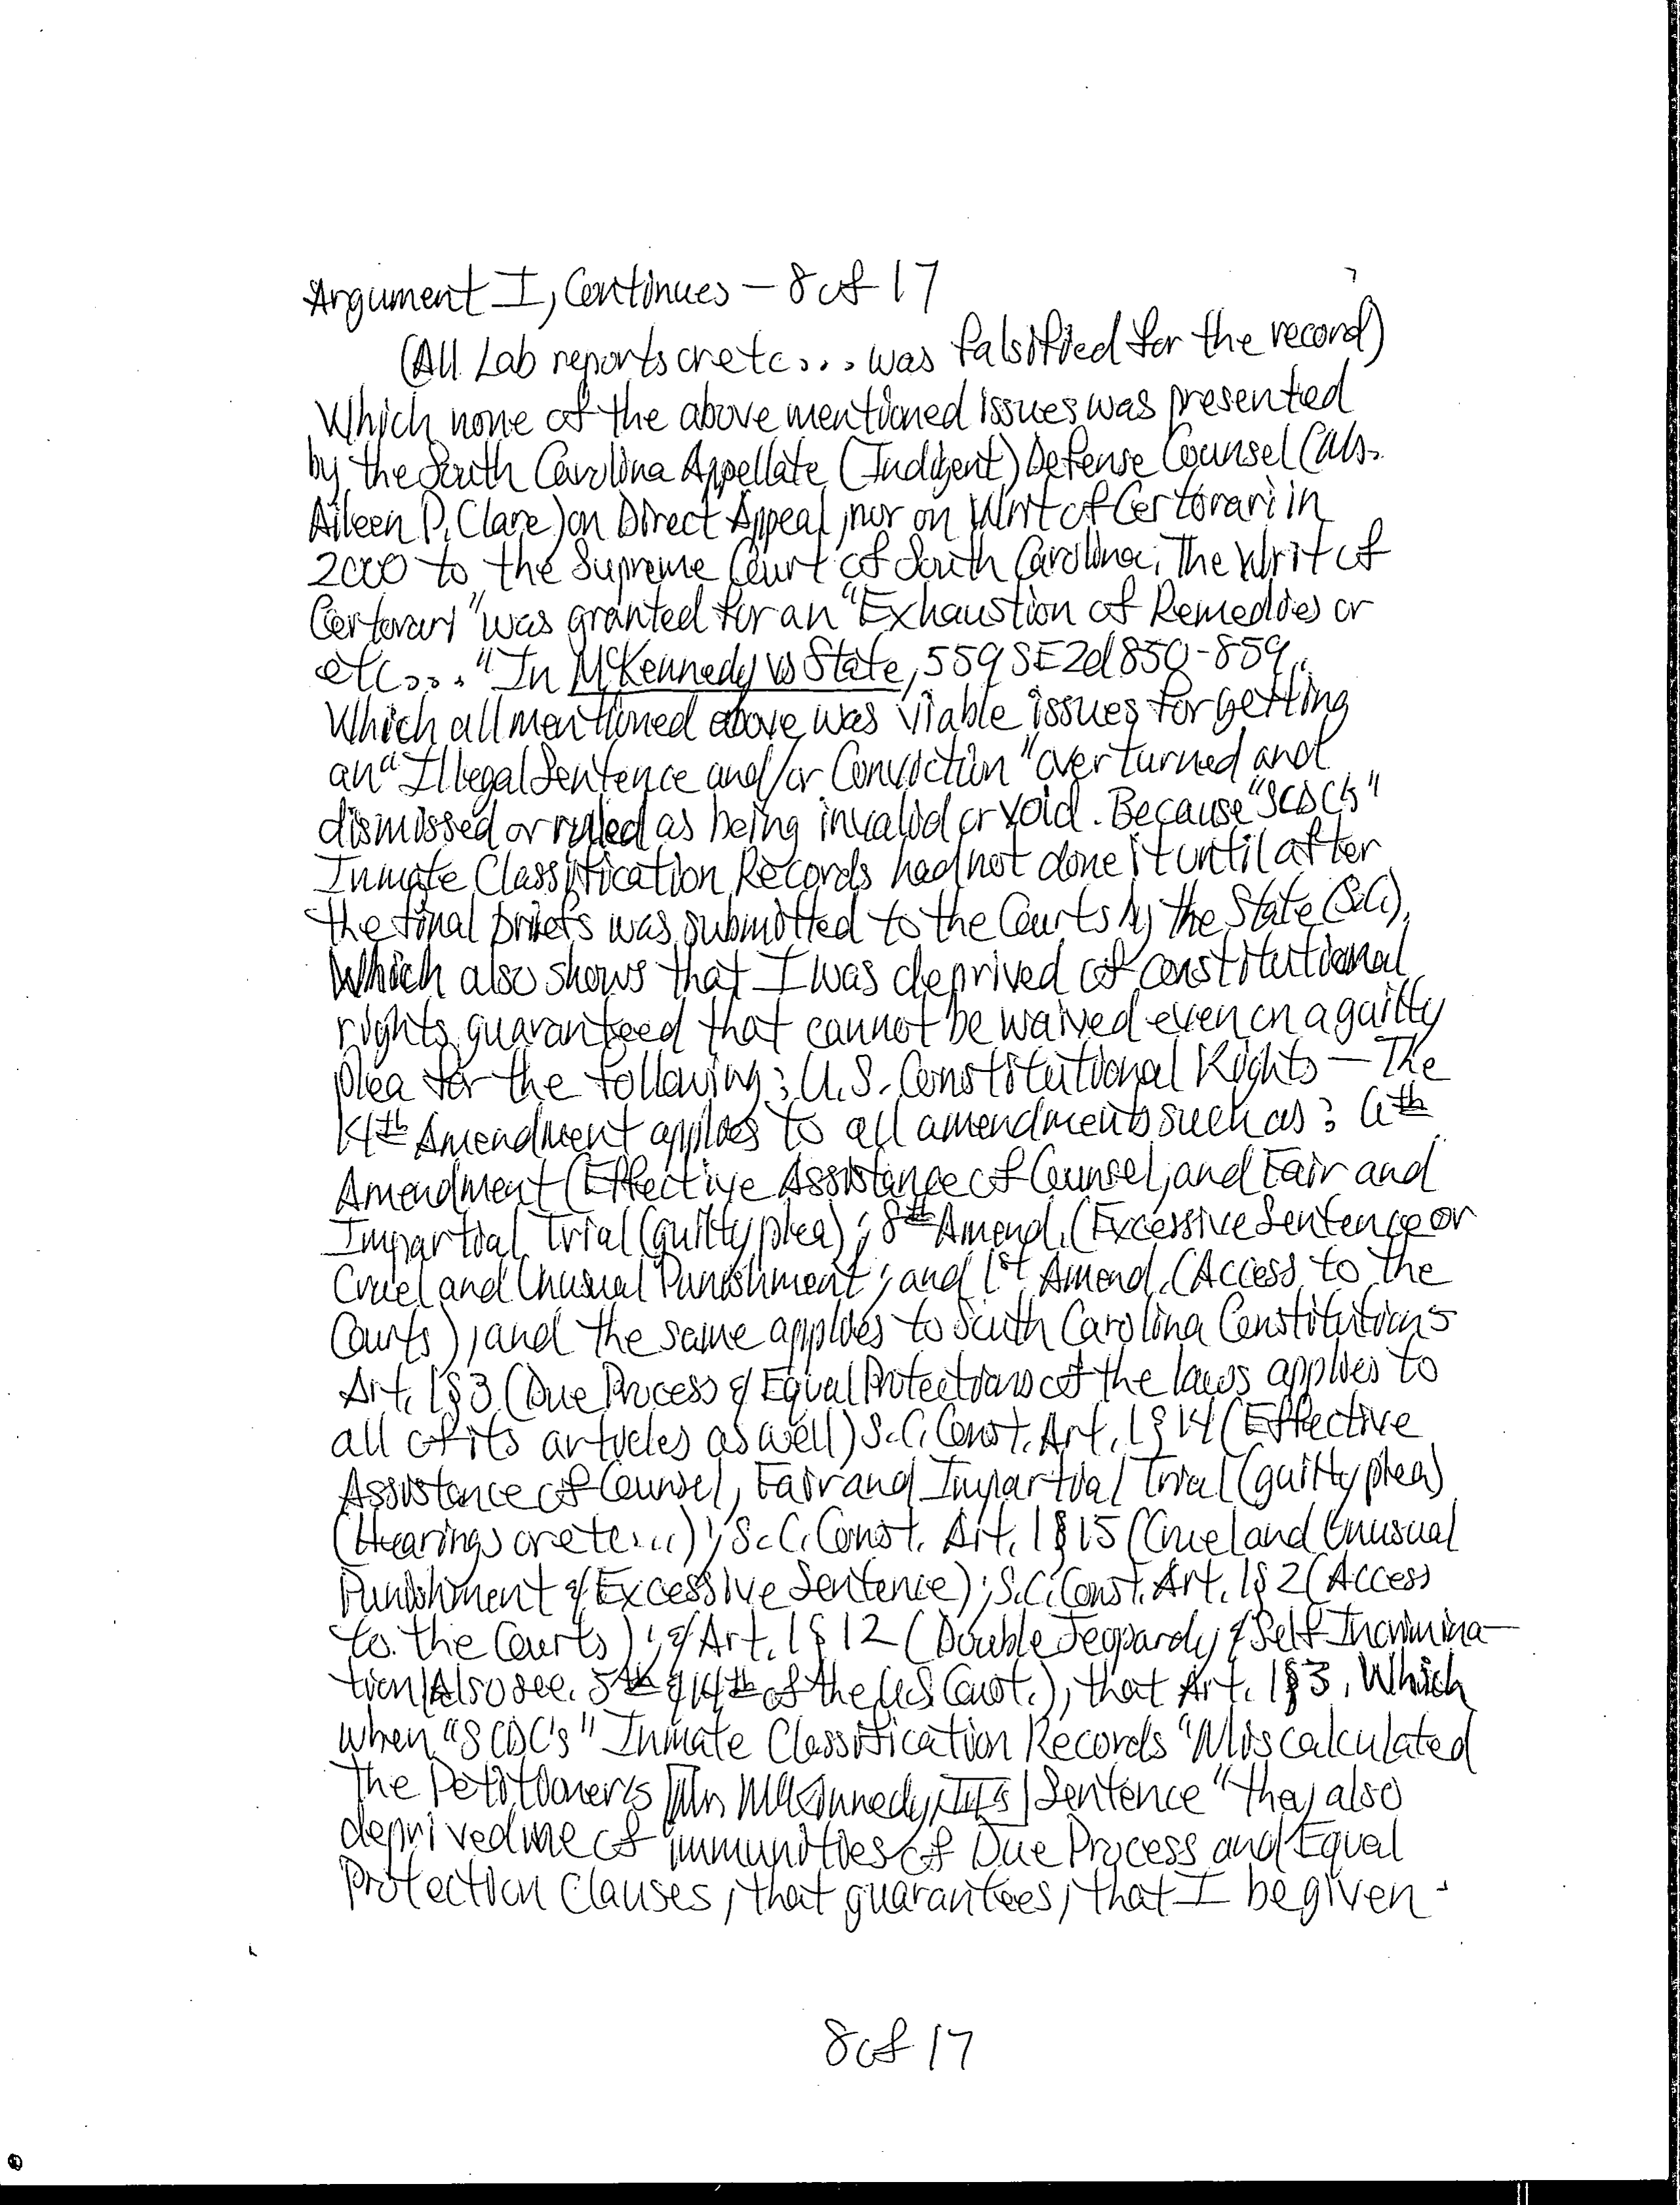 Argument I, Continues — 8 of 17
(All Lab reports or etc... was falsified for the record)
Which none of the above mentioned issues was presented
by the South Carolina Appellate (Indigent) Defense Counsel (Ms.
Aileen P. Clare) on Direct Appeal, nor on Writ of Certorari in
2000 to the Supreme Court of South Carolina; The Writ of
Certorari "was granted for an "Exhaustion of Remedies or
etc...." In McKennedy vs State, 559 SE2d 850-859.
Which all mentioned above was viable issues for getting
an "Illegal Sentence and/or Conviction" overturned and
dismissed or ruled as being invalid or void. Because "SCDC's"
Inmate Classification Records had not done it until after
the final briefs was submitted to the Courts by the State (S.C.).
Which also shows that I was deprived of constitutional
rights guaranteed that cannot be waived even on a guilty
plea for the following: U.S. Constitutional Rights — The
14th Amendment applies to all amendments such as: 6th
Amendment (Effective Assistance of Counsel, and Fair and
Impartial Trial (guilty plea); 8th Amend. (Excessive Sentence or
Cruel and Unusual Punishment; and 1st Amend. (Access to the
Courts), and the same applies to South Carolina Constitution's
Art. 1 § 3 (Due Process & Equal Protections of the laws applies to
all of its articles as well) S.C. Const. Art. 1 § 14 (Effective
Assistance of Counsel, Fair and Impartial Trial (guilty plea)
(Hearings or etc...); S.C. Const. Art. 1 § 15 (Cruel and Unusual
Punishment & Excessive Sentence); S.C. Const. Art. 1 § 2 (Access
to the Courts); & Art. 1 § 12 (Double Jeopardy & Self Incrimina-
tion/Also see. 5th & 14th of the U.S. Const.), that Art. 1 § 3. Which
when "SCDC's" Inmate Classification Records "Miscalculated
the Petitioner's [Mr. McKennedy, III's] Sentence" they also
deprived me of immunities of Due Process and Equal
Protection Clauses, that guarantees, that I be given -
8 of 17